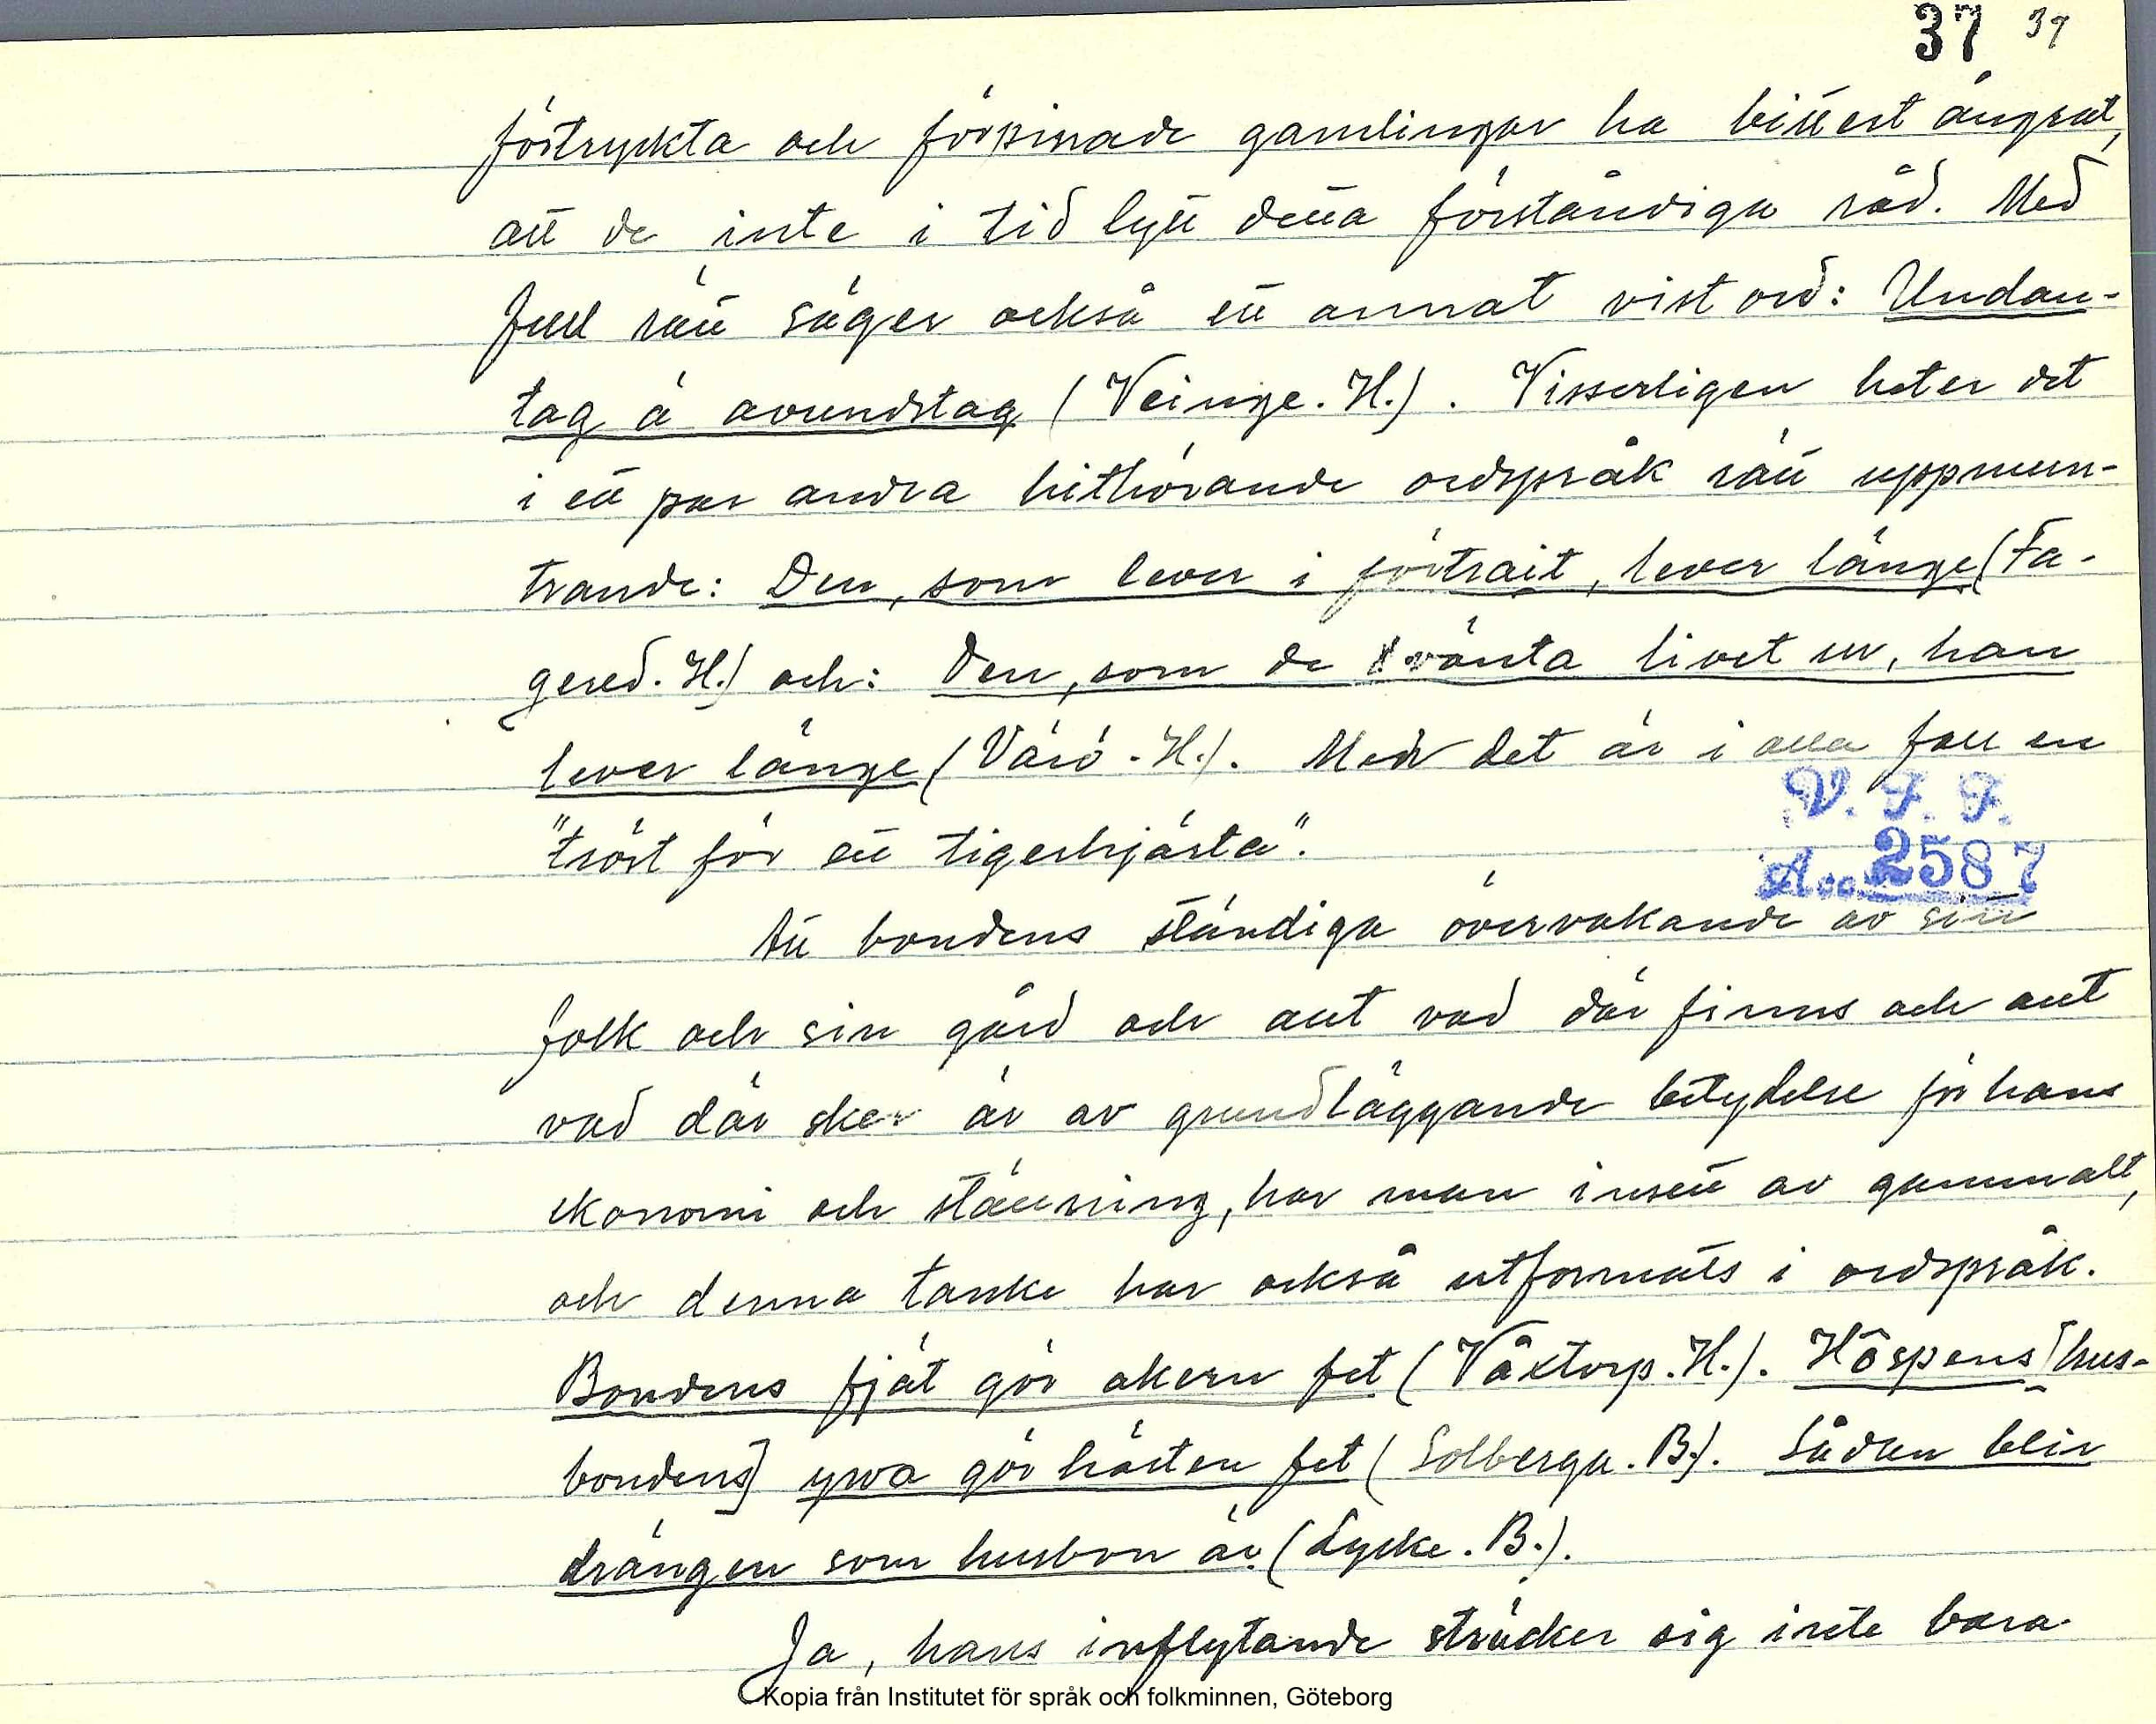 37 37
förtryckta och förpinade gamlingar ha bittert ångrat,
att de inte i tid lytt detta förståndiga råd. Med
full rätt säger också ett annat vist ord: Undan-
tag ä avundstag (Veinge. H.). Visserligen heter det
i ett par andra hithörande ordspråk rätt uppmun-
trande: Den, som lever i förtrait, lever länge (Fa-
gered. H.) och: Den, som de vänta livet ur, han
lever länge (Värö. H.). Men det är i alla fall en
"tröst för ett tigerhjärta".
V. F. F.
Acc. 2587
Att bondens ständiga övervakande av sitt
folk och sin gård och allt vad där finns och allt
vad där sker är av grundläggande betydelse för hans
ekonomi och ställning, har man insett av gammalt,
och denna tanke har också utformats i ordspråk.
Bondens fjät gör akern fet (Våxtorp. H.). Hôspens [hus-
bondens] ywa gör hästen fet (Solberga. B.). Sådan blir
drängen som husbon är (Lycke. B.).
Ja, hans inflytande sträcker sig inte bara
Kopia från Institutet för språk och folkminnen, Göteborg